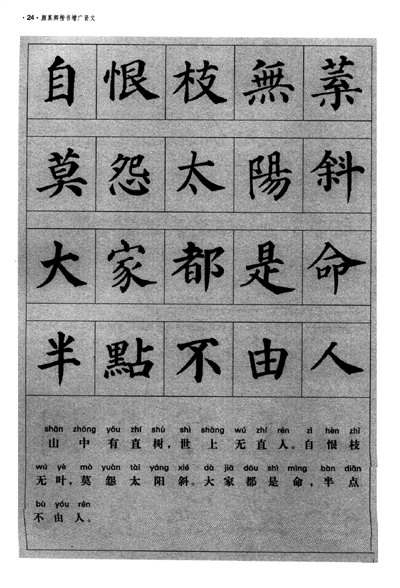 ·24·颜真卿楷书增广贤文
自恨枝無葉
莫怨太陽斜
大家都是命
半點不由人
shān zhōng yǒu zhí shù shì shàng wú zhí rén zì hèn zhī
山中有直树,世上无直人。自恨枝
wú yè mò yuàn tài yáng xié dà jiā dōu shì mìng bàn diǎn
无叶,莫怨太阳斜。大家都是命,半点
bù yóu rén
不由人。